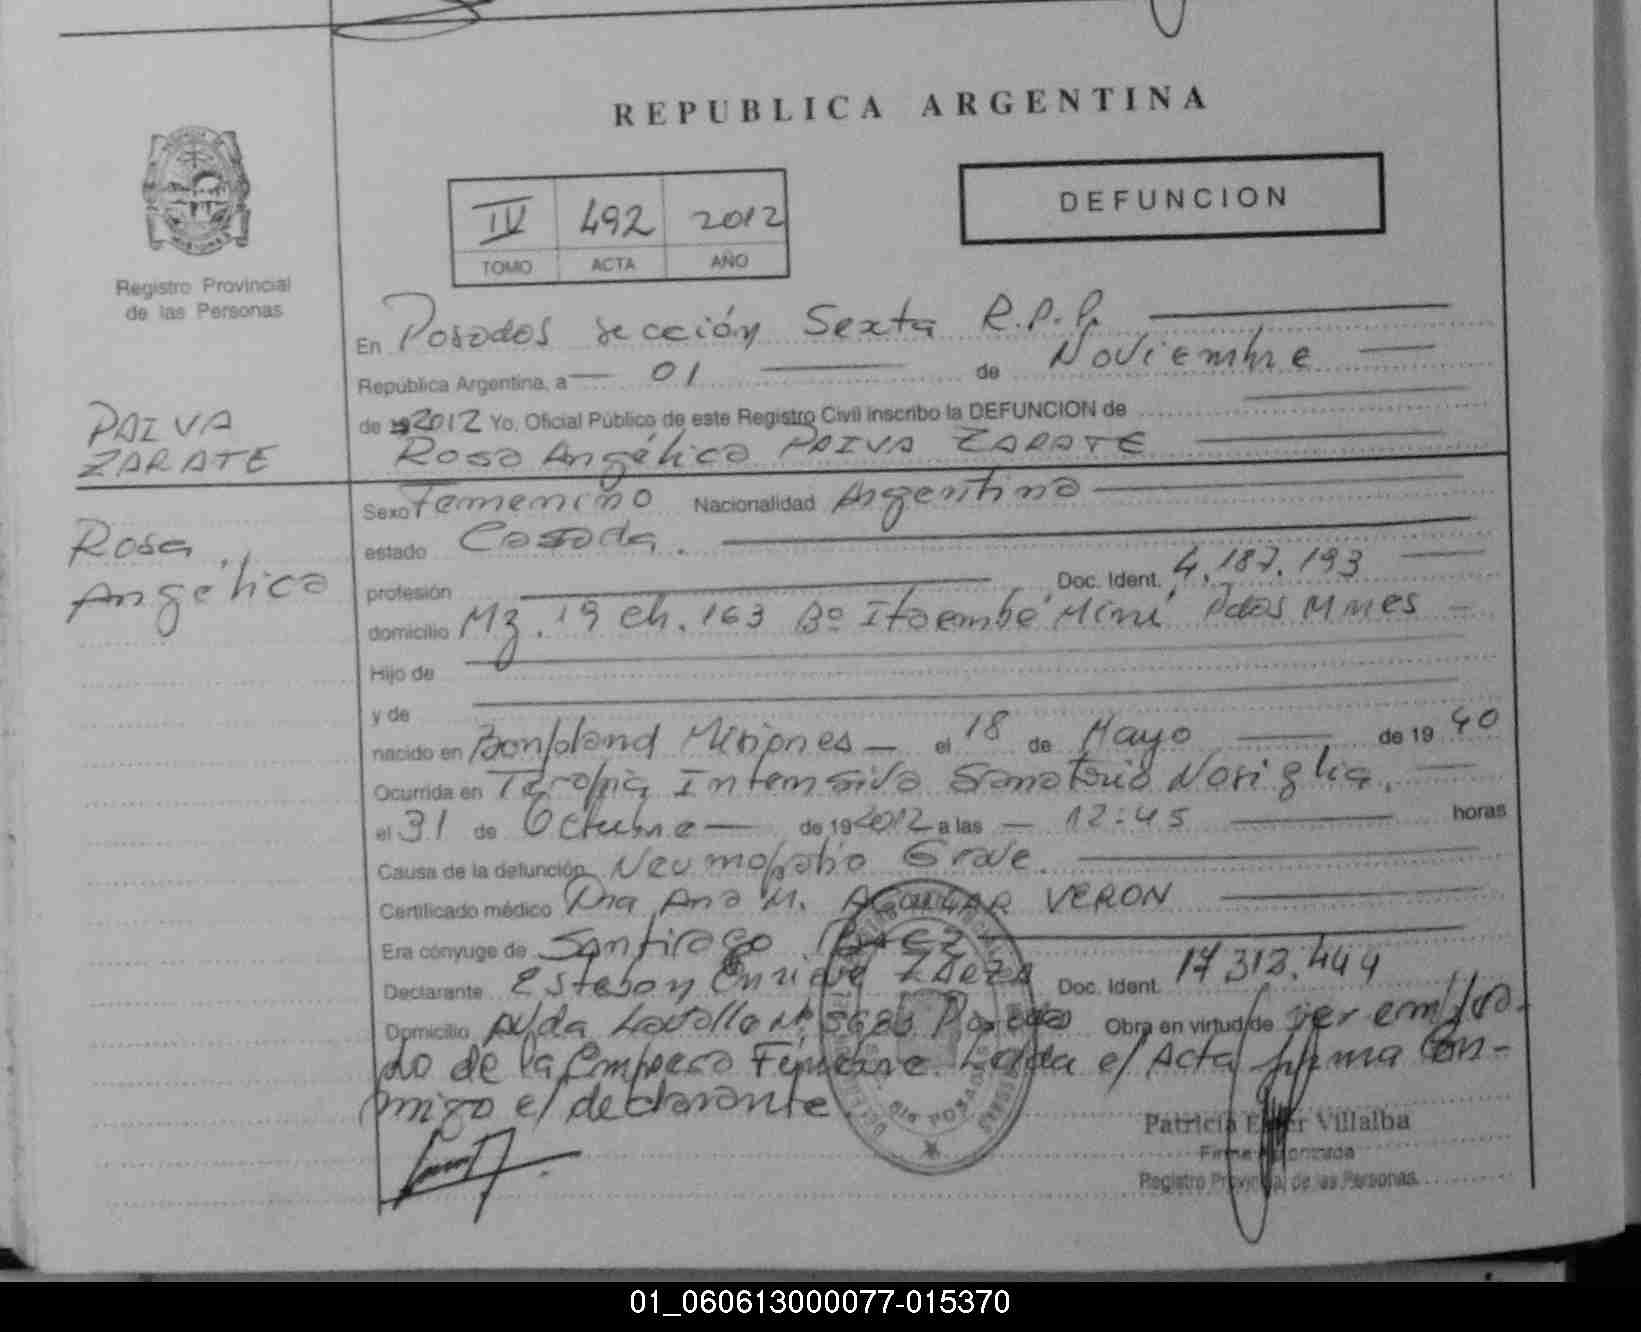 REPUBLICA ARGENTINA
DEFUNCION
IV 492 2012
TOMO ACTA AÑO
Registro Provincial
de las Personas
En Posadas sección Sexta R.P.P.
República Argentina, a 01 de Noviembre
de 2012 Yo, Oficial Público de este Registro Civil inscribo la DEFUNCION de
Rosa Angélica PAIVA ZARATE
PAIVA
ZARATE
Rosa
Angélica
Sexo Femenino Nacionalidad Argentina
estado Casada.
profesión Doc. Ident. 4.187.193
domicilio Mz. 19 ch. 163 Bº Itaembé Miní Pdas Mnes
Hijo de
y de
nacido en Bonpland Misiones el 18 de Mayo de 1940
Ocurrida en Terapia Intensiva Sanatorio Nosiglia.
el 31 de Octubre de 19 2012 a las 12:45 horas
Causa de la defunción Neumopatía Grave.
Certificado médico Dra Ana M. AGUILAR VERON
Era cónyuge de Santiago
Declarante Esteban Enrique Doc. Ident. 17.313.444
Domicilio Avda Lavalle Nº Posadas Obra en virtud de ser emplea-
do de la Empresa Fúnebre. Leída el Acta firma con-
migo el declarante.
POSADAS
Patricia Villalba
Firma Autorizada
Registro Provincial de las Personas
01_060613000077-015370